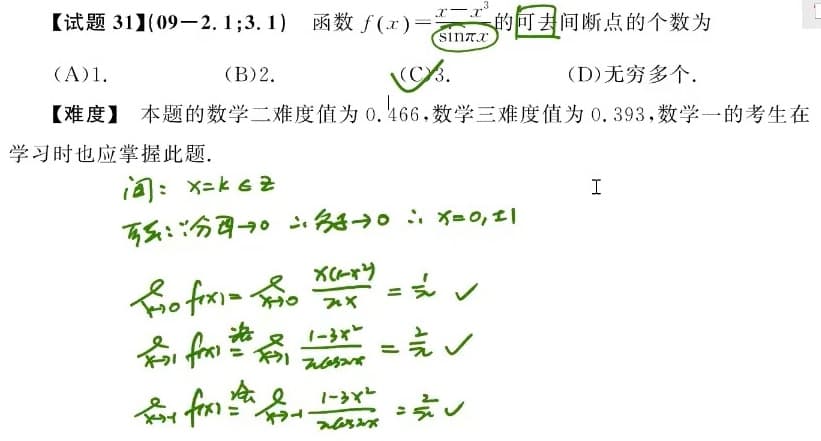 【试题 31】(09-2.1;3.1) 函数 f(x)=\frac{x-x^3}{\sin πx}的可去间断点的个数为
(A)1. (B)2. (C)3. (D)无穷多个.
【难度】 本题的数学二难度值为 0.466,数学三难度值为 0.393,数学一的考生在
学习时也应掌握此题.
间: x=k∈Z
可去: ∵分母→0 ∴分子→0 ∴ x=0,±1
lim_{x→0} f(x) = lim_{x→0} \frac{x(1-x²)}{πx} = \frac{1}{π} ✓
lim_{x→1} f(x) 洛= lim_{x→1} \frac{1-3x²}{πcosπx} = \frac{2}{π} ✓
lim_{x→-1} f(x) 洛= lim_{x→-1} \frac{1-3x²}{πcosπx} = \frac{2}{π} ✓